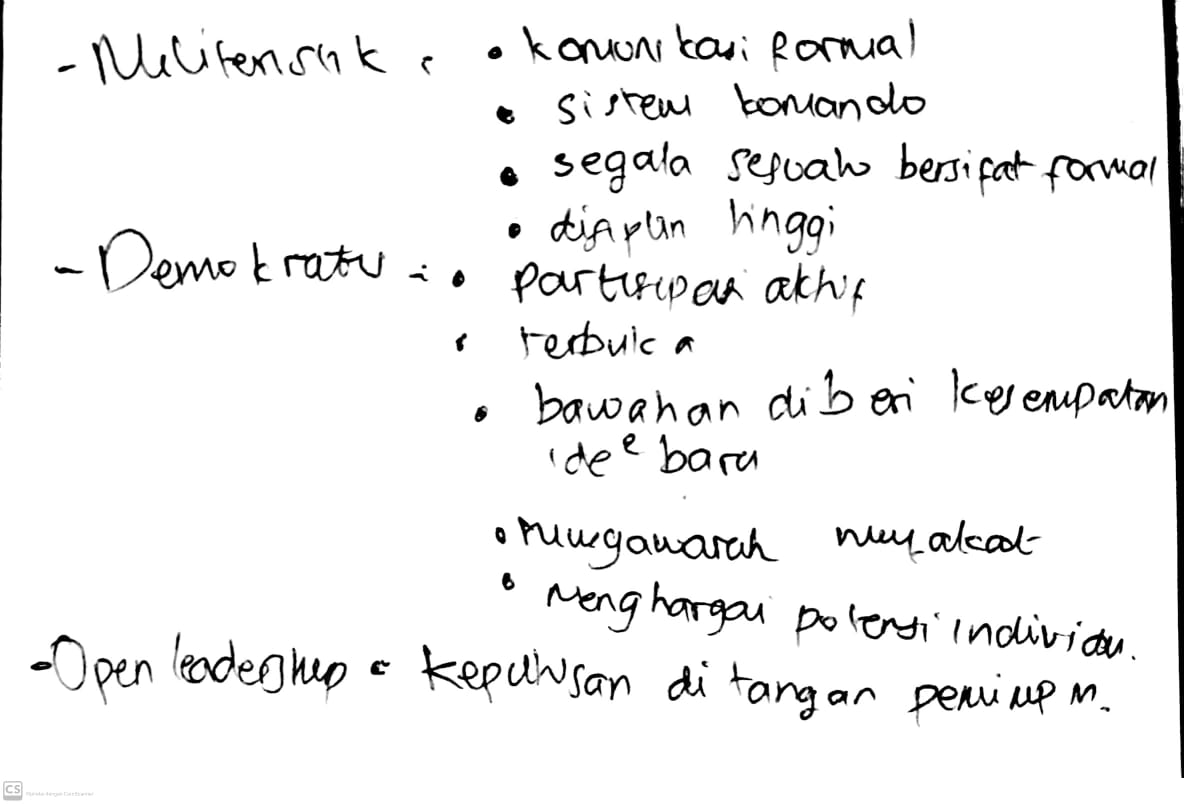 - Militeristik : • komunikasi formal
• sistem komando
• segala sesuatu bersifat formal
• disiplin tinggi
- Demokratis : • partisipasi aktif
• terbuka
• bawahan diberi kesempatan
ide² baru
• musyawarah mufakat
• Menghargai potensi individu.
- Open leadership : keputusan di tangan pemimpin.
CS